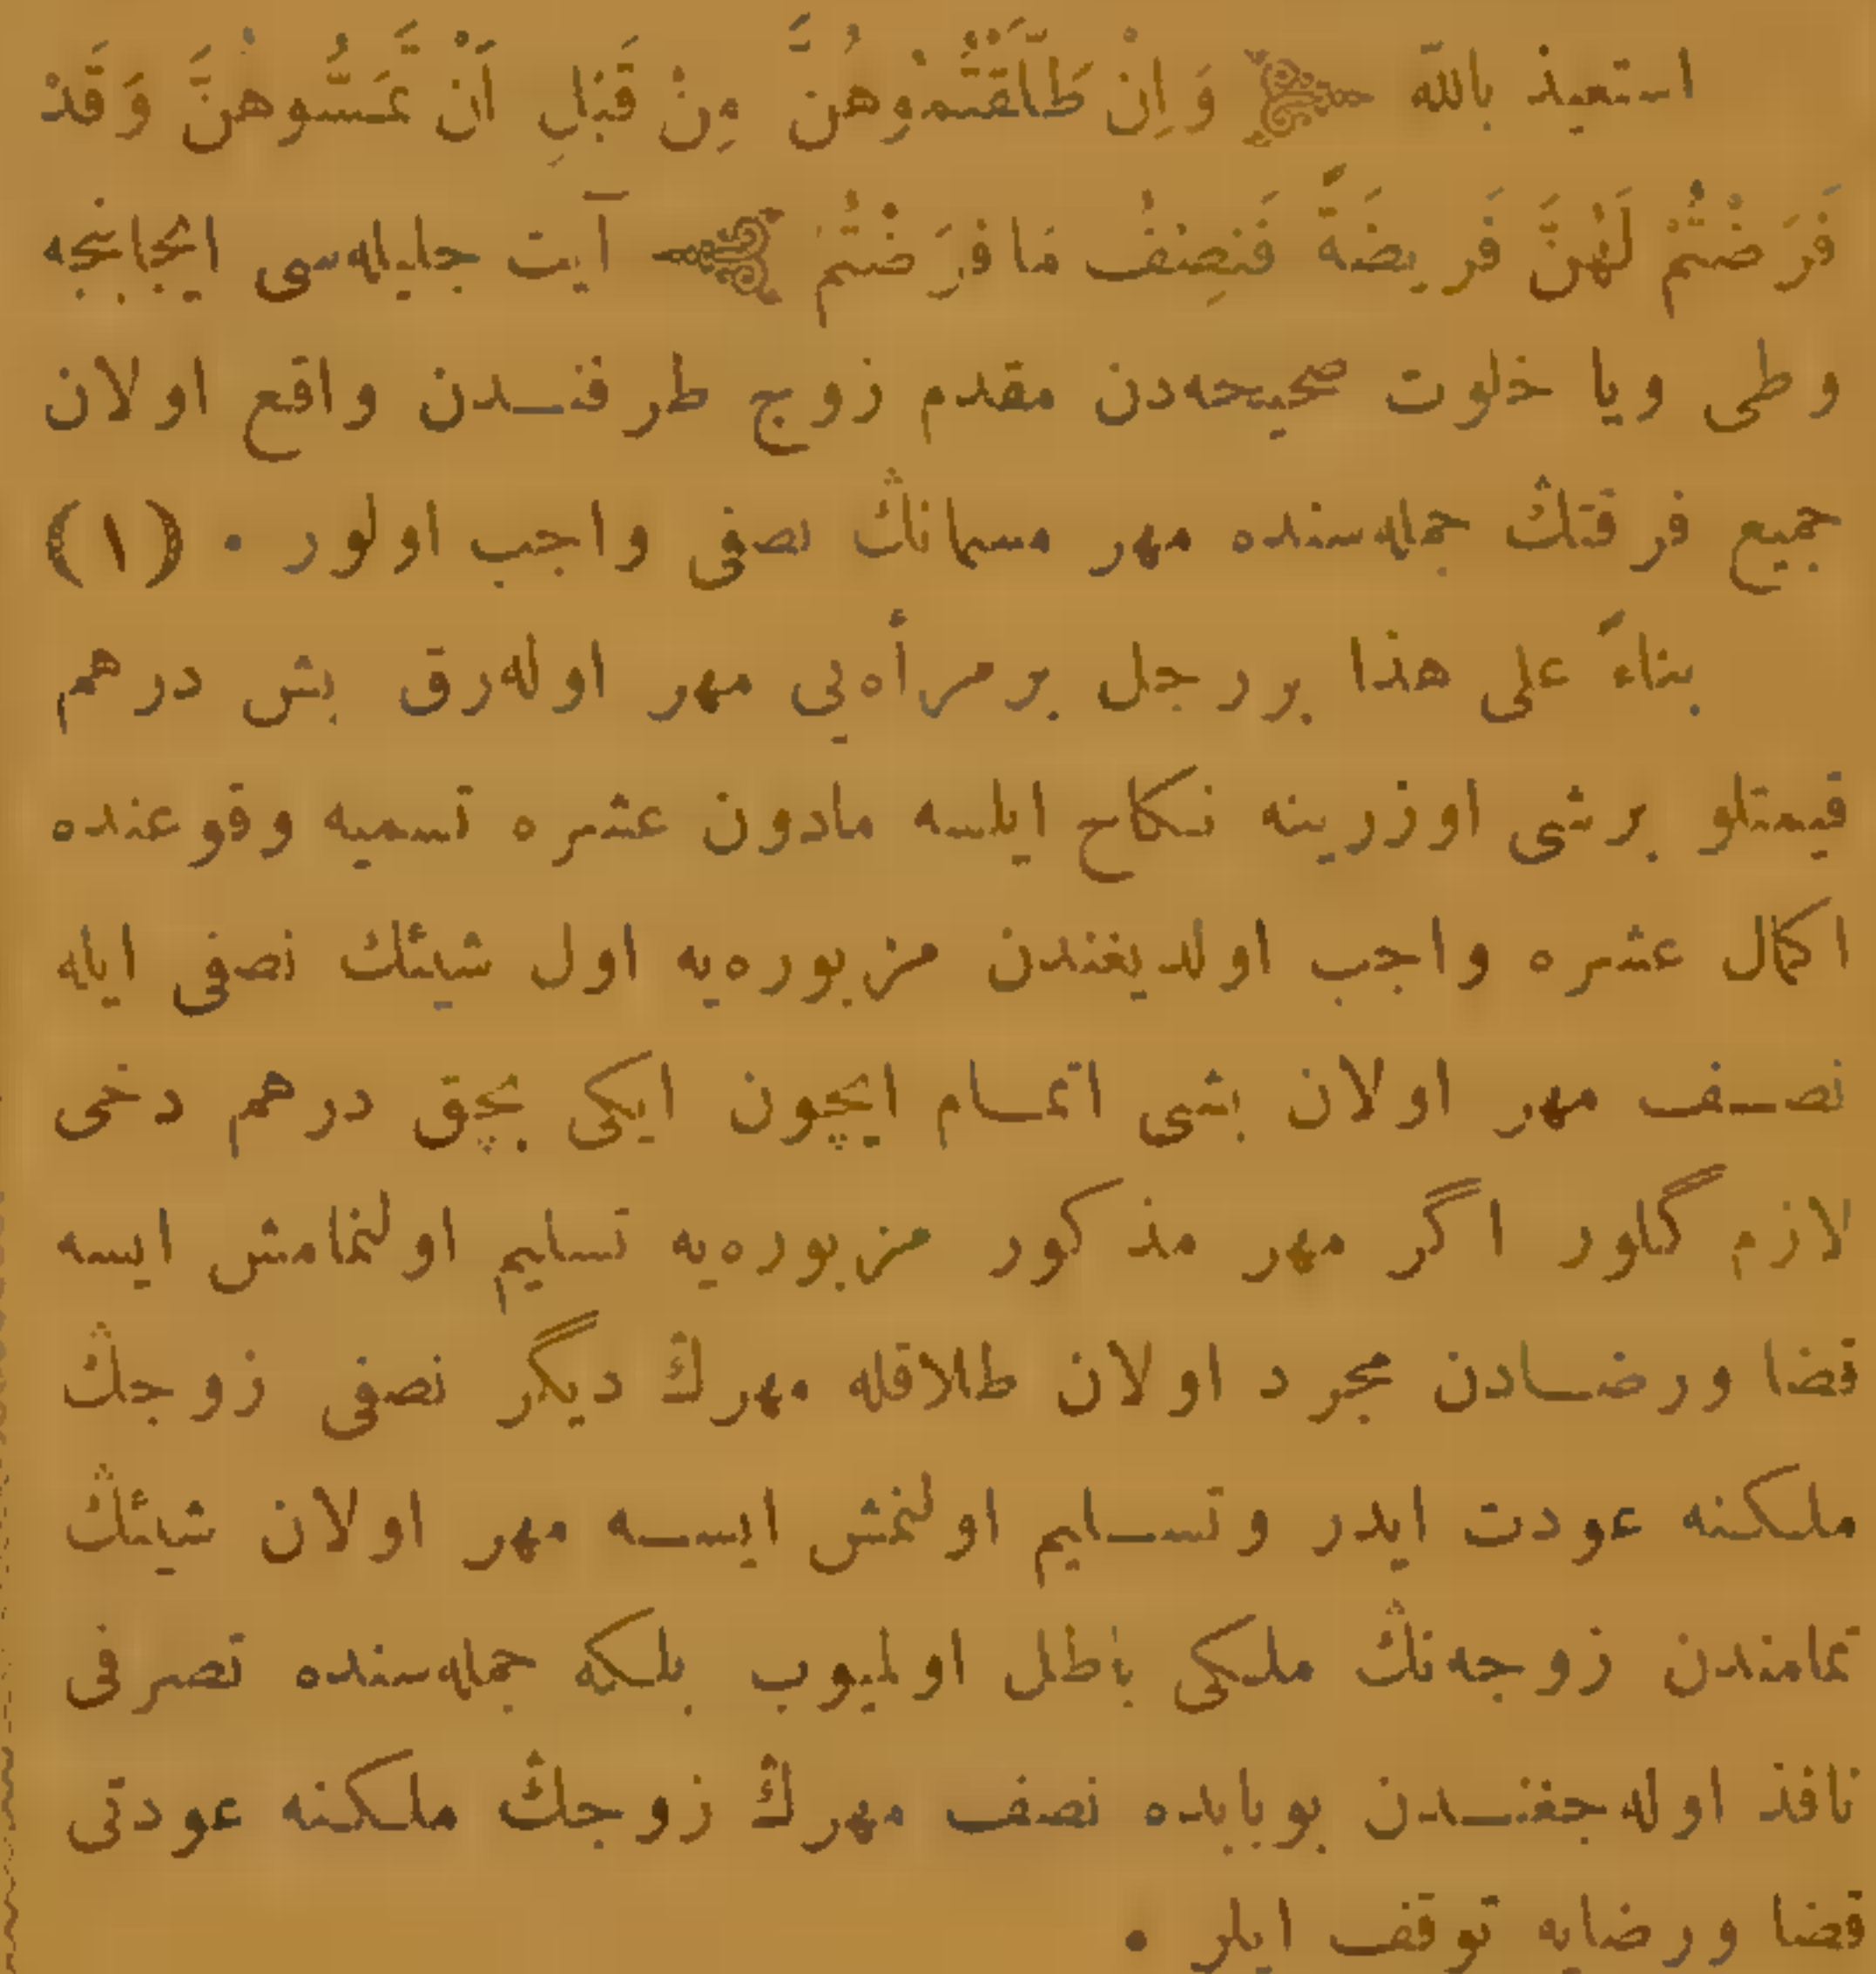 استعیذ بالله ﴿ وَاِنْ طَلَّقْتُمُوهُنَّ مِنْ قَبْلِ اَنْ تَمَسُّوهُنَّ وَقَدْ
فَرَضْتُمْ لَهُنَّ فَرِيضَةً فَنِصْفُ مَا فَرَضْتُمْ ﴾ آیت جلیله‌سی ایجابنجه
وطی ویا خلوت صحیحه‌دن مقدم زوج طرفندن واقع اولان
جمیع فرقتڭ جمله‌سنده مهر مسمانڭ نصفی واجب اولور . (١)
بناءً علی هذا بر رجل بر مرأه‌یی مهر اوله‌رق بش درهم
قیمتلو بر شی اوزرینه نكاح ایلسه مادون عشره تسمیه وقوعنده
اكمال عشره واجب اولدیغندن مزبوره‌یه اول شیئك نصفی ایله
نصف مهر اولان بشی اتمام ایچون ایكی بچق درهم دخی
لازم گلور اگر مهر مذكور مزبوره‌یه تسلیم اولنمامش ایسه
قضا ورضادن مجرد اولان طلاقله مهرڭ دیگر نصفی زوجڭ
ملكنه عودت ایدر وتسلیم اولنمش ایسه مهر اولان شیئڭ
تمامندن زوجه‌نڭ ملكی باطل اولمیوب بلكه جمله‌سنده تصرفی
نافذ اوله‌جغندن بوبابده نصف مهرڭ زوجڭ ملكنه عودتی
قضا ورضایه توقف ایلر .